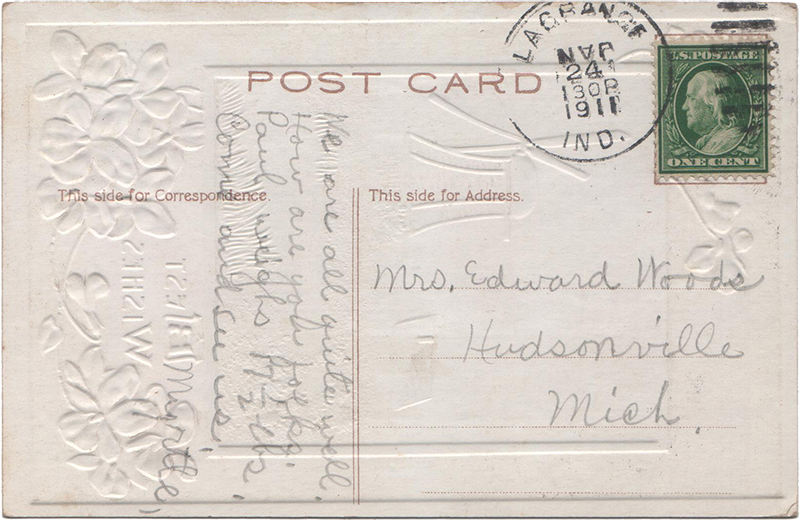 LAGRANGE
24
130P
1911
IND.
U.S. POSTAGE
ONE CENT
POST CARD
This side for Correspondence.
This side for Address.
We are all quite well.
How are you folks.
Paul weighs lbs.
Come and see us.
Myrtle,
Mrs. Edward Woods
Hudsonville
Mich.
BEST
WISHES